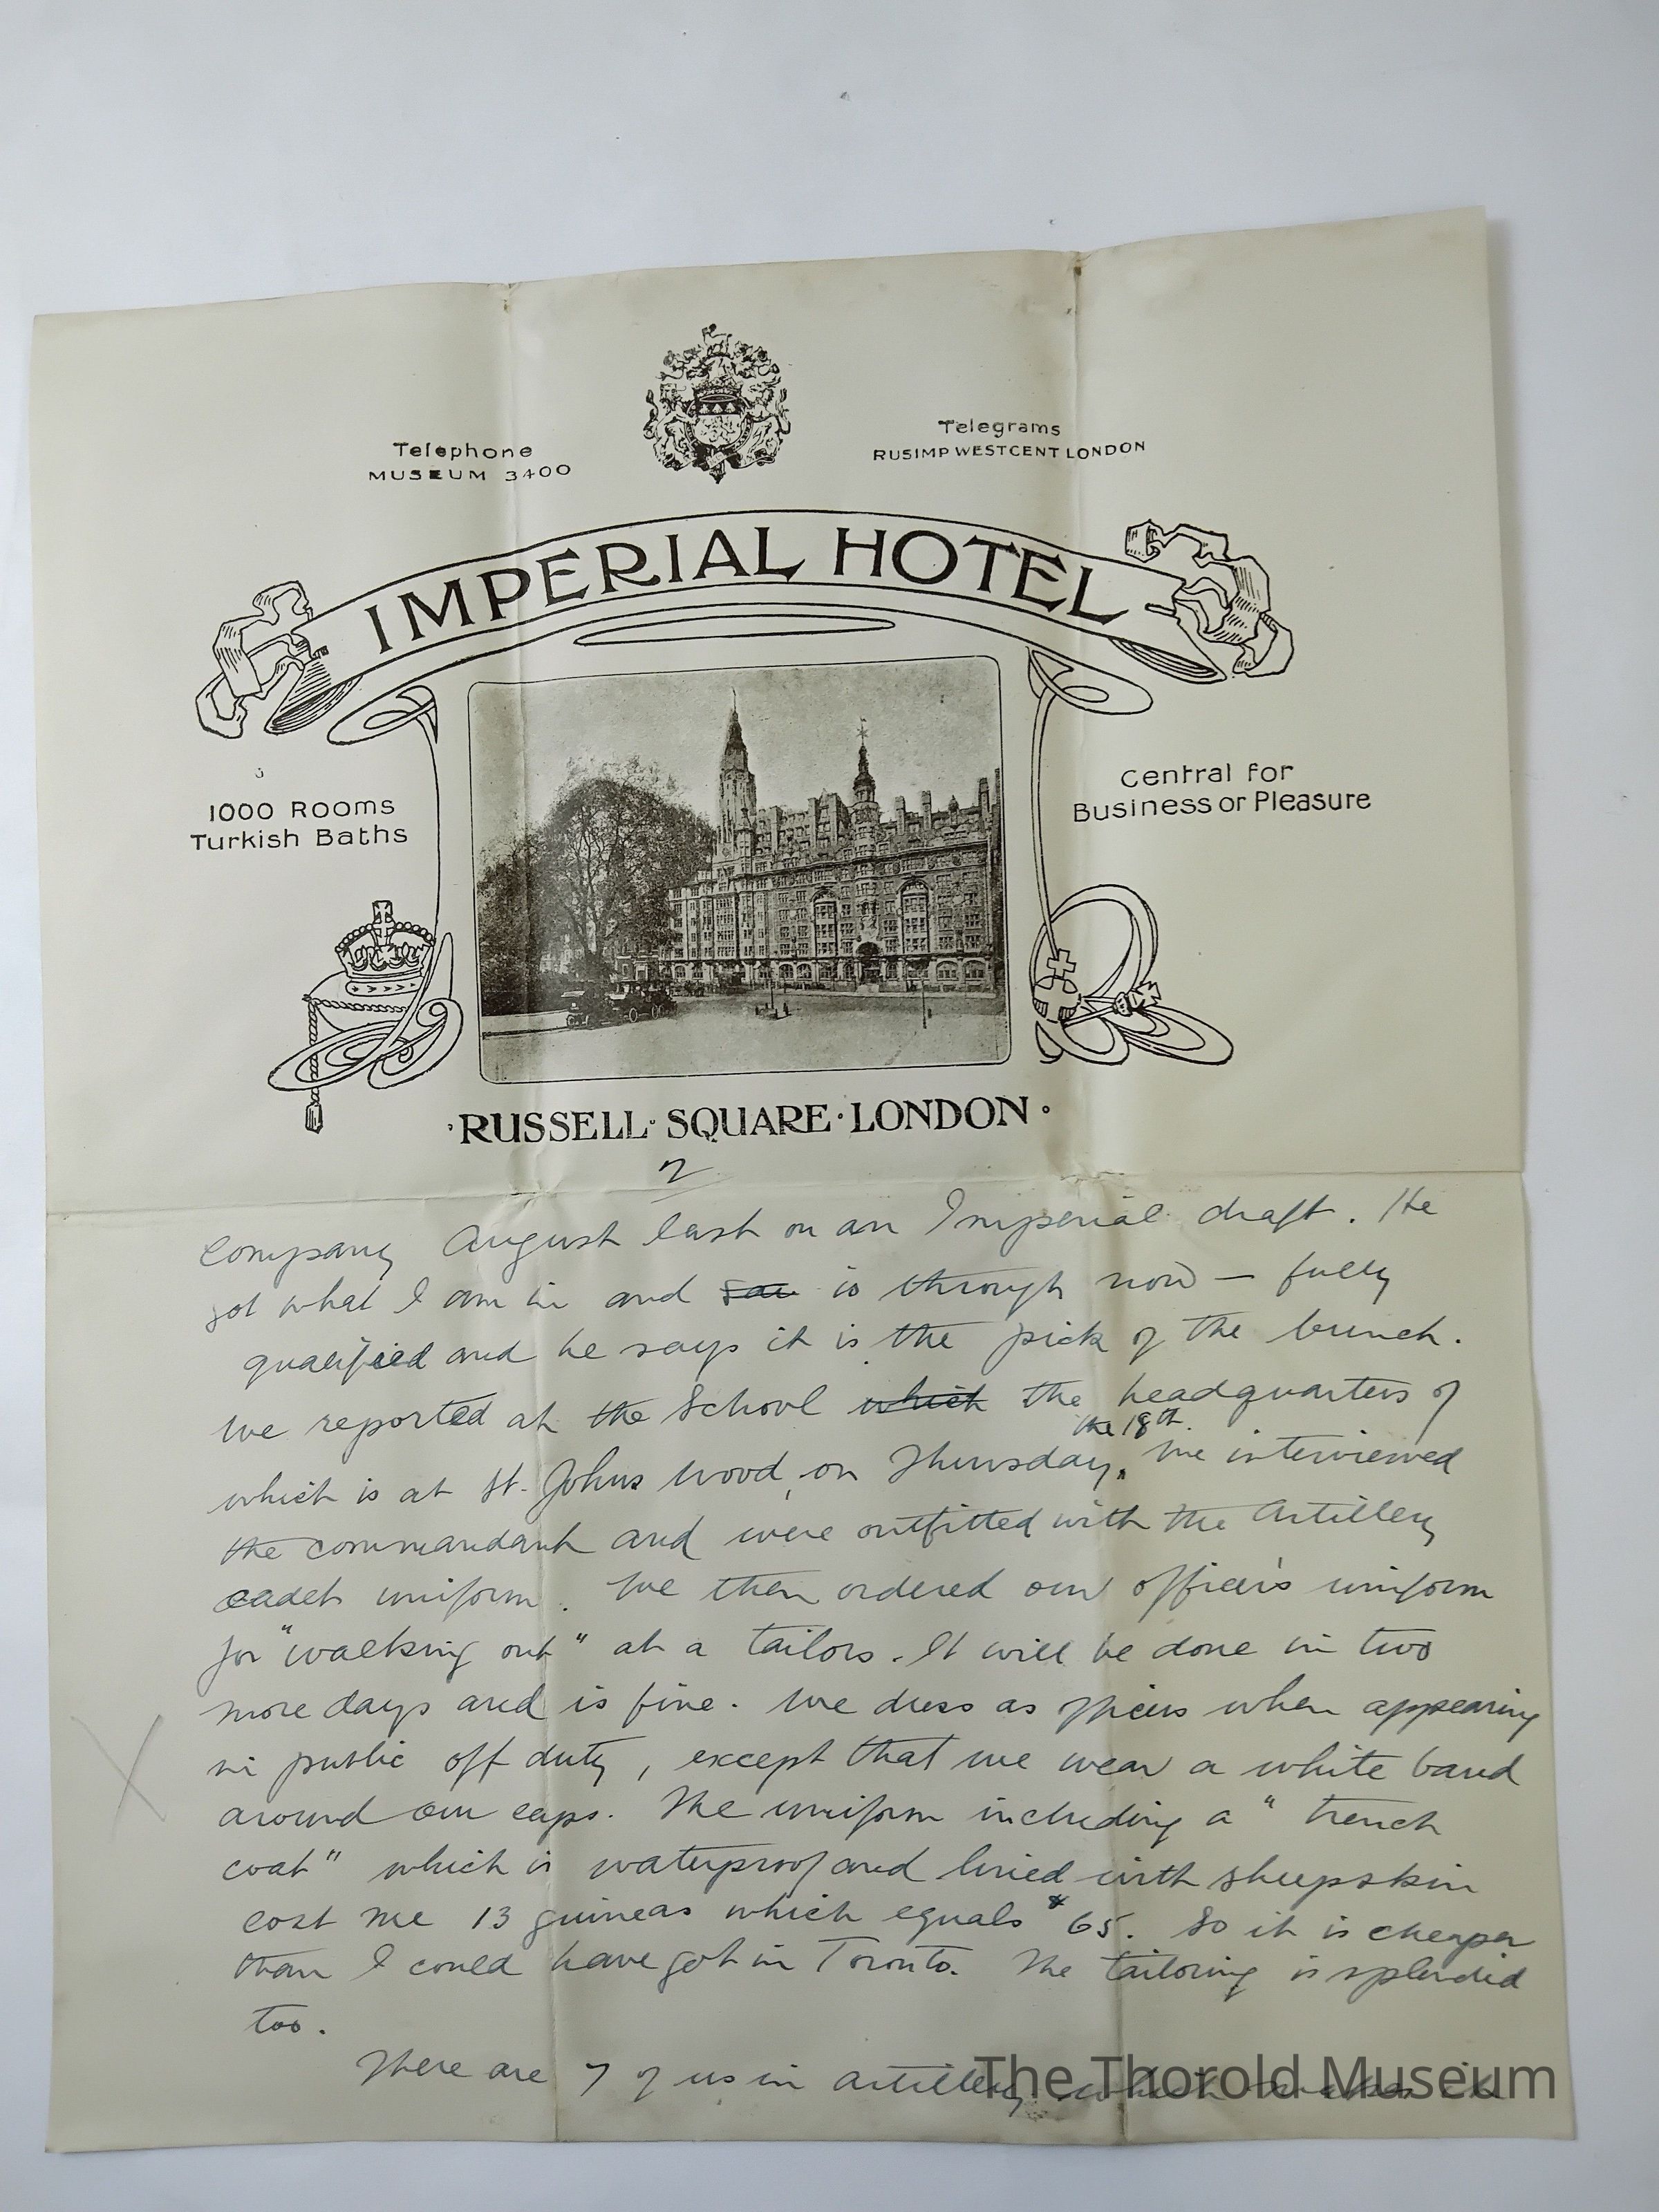 Telephone
MUSEUM 3400
Telegrams
RUSIMP WESTCENT LONDON
IMPERIAL HOTEL
1000 ROOMS
Turkish Baths
Central for
Business or Pleasure
·RUSSELL·SQUARE·LONDON·
2
Company August last on an Imperial draft. He
got what I am in and is through now — fully
qualified and he says it is the pick of the bunch.
We reported at the School which the headquarters of
the 18th.
which is at St. Johns Wood, on Thursday. We interviewed
the commandant and were outfitted with the Artillery
cadet uniform. We then ordered our officer's uniform
for "walking out" at a tailors. It will be done in two
more days and is fine. We dress as officers when appearing
in public off duty, except that we wear a white band
around our caps. The uniform including a "trench
coat" which is waterproof and lined with sheepskin
cost me 13 guineas which equals $65. So it is cheaper
than I could have got in Toronto. The tailoring is splendid
too.
There are 7 of us in artillery which makes it
The Thorold Museum